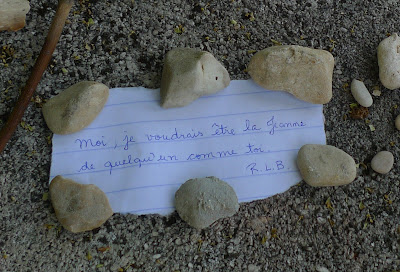 Moi, je voudrais être la Jeanne
de quelqu'un comme toi.
R.L.B.